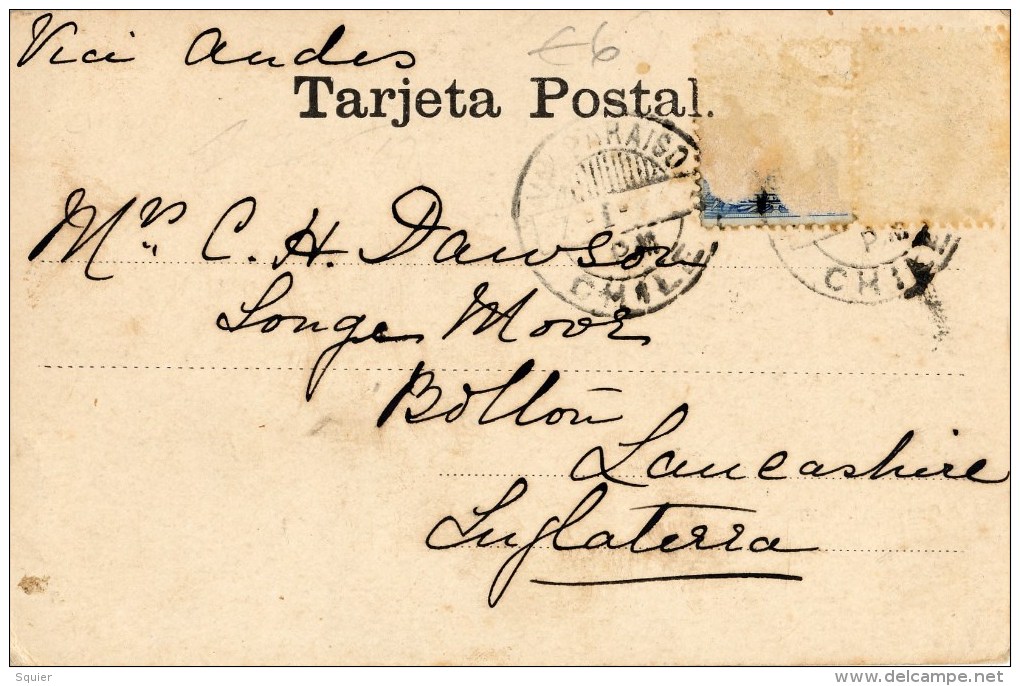 Via Andes
£6
Tarjeta Postal.
VALPARAISO
1
P.M
CHILE
P.M
CHILE
Mrs C. H. Dawson
Longe Moor
Bolton
Lancashire
Inglaterra
Squier
www.delcampe.net